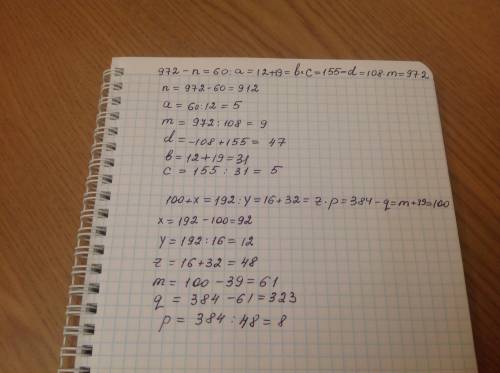 972 - n = 60 : a = 12+19 = b · c = 155 - d = 108 · m = 972
n = 972 - 60 = 912
a = 60 : 12 = 5
m = 972 : 108 = 9
d = -108 + 155 = 47
b = 12 + 19 = 31
c = 155 : 31 = 5
100 + x = 192 : y = 16 + 32 = z · p = 384 - q = m + 39 = 100
x = 192 - 100 = 92
y = 192 : 16 = 12
z = 16 + 32 = 48
m = 100 - 39 = 61
q = 384 - 61 = 323
p = 384 : 48 = 8